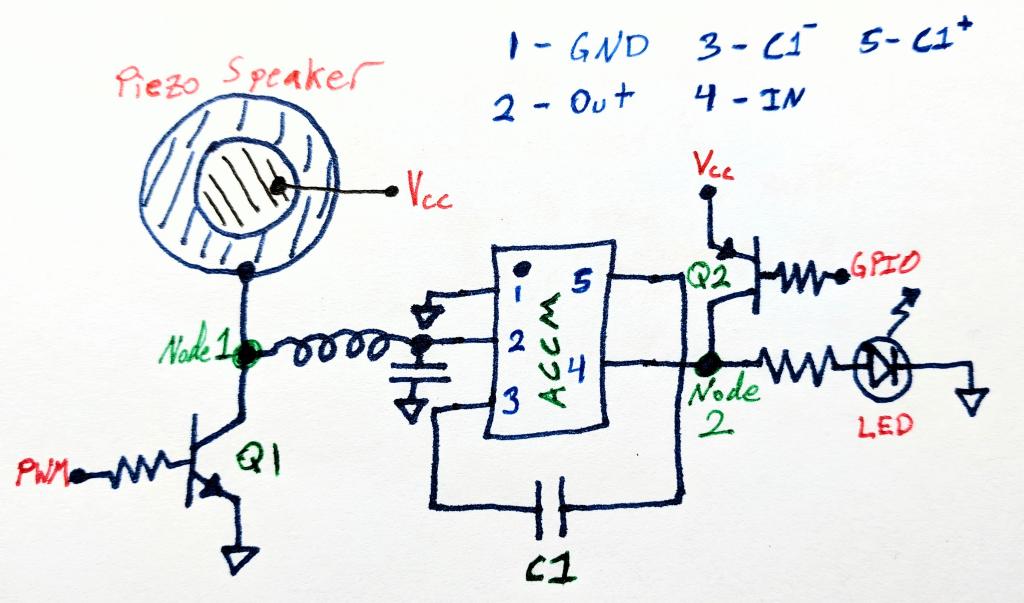 1 - GND 3 - C1⁻ 5 - C1⁺
2 - Out 4 - IN
Piezo Speaker
Vcc
Vcc
GPIO
Q2
Node 1
1
2
3
5
4
ACCM
Node
2
LED
PWM
Q1
C1